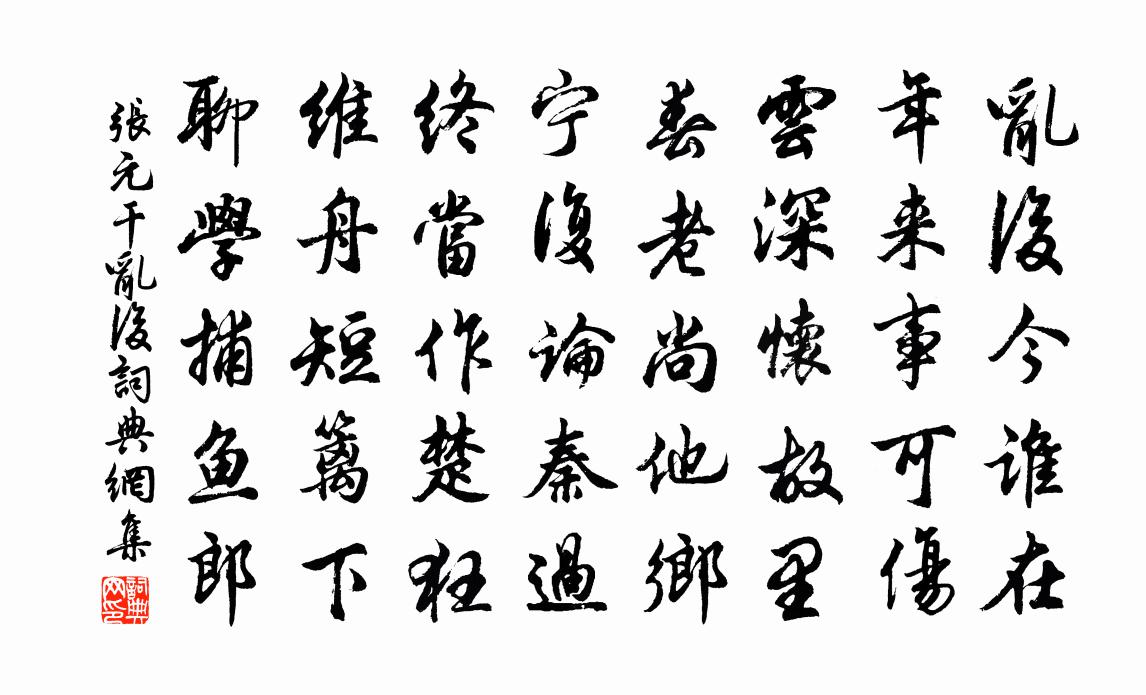 亂後今誰在
年来事可傷
雲深懷故里
春老尚他鄉
宁復論秦過
終當作楚狂
維舟短篱下
聊學捕鱼郎
張元干亂後詞典網集
詞典网印